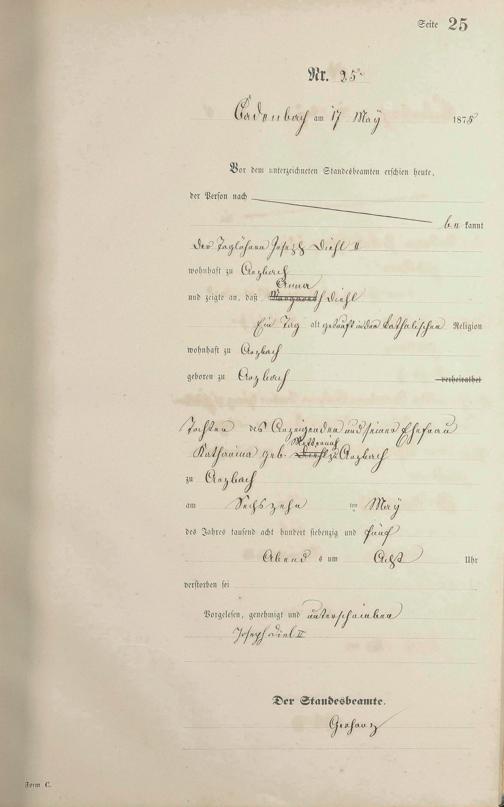 Seite 25
Nr. 25
Cadenbach am 17 May 1875
Vor dem unterzeichneten Standesbeamten erschien heute,
der Person nach
bekannt
der Taglöhner Joseph Diehl II
wohnhaft zu Arzbach
und zeigte an, daß Anna Diehl
Ein Tag alt getauft in der katholischen Religion
wohnhaft zu Arzbach
geboren zu Arzbach verheirathet
Tochter des Anzeigenden und seiner Ehefrau
Katharina geb. zu Arzbach
zu Arzbach
am Sechszehn ten May
des Jahres tausend acht hundert siebenzig und fünf
Abend s um Acht Uhr
verstorben sei
Vorgelesen, genehmigt und unterschrieben
Joseph Diel II
Der Standesbeamte.
Form C.